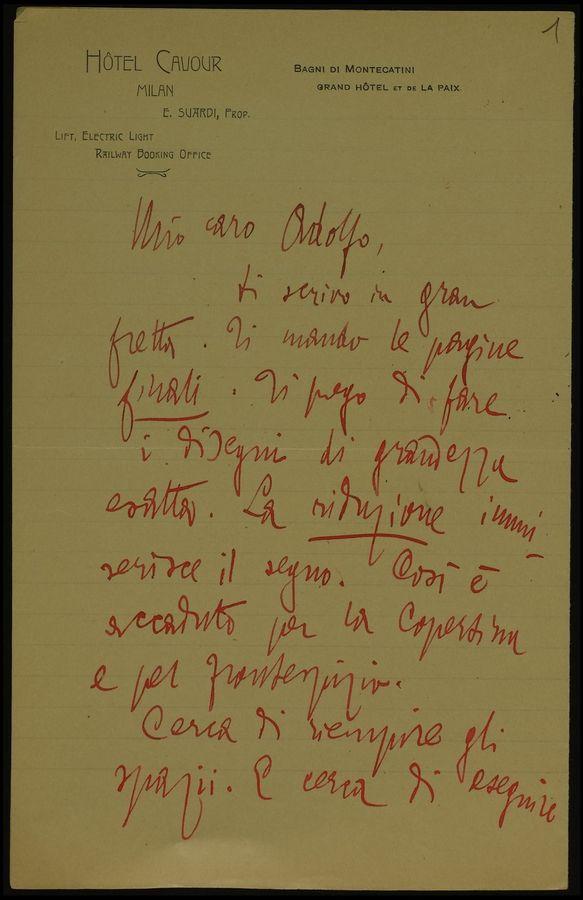 1
HÔTEL CAVOUR
MILAN
E. SUARDI, PROP.
LIFT, ELECTRIC LIGHT
RAILWAY BOOKING OFFICE
BAGNI DI MONTECATINI
GRAND HÔTEL ET DE LA PAIX.
Mio caro Adolfo,
ti scrivo in gran
fretta. Ti mando le pagine
finali. Ti prego di fare
i disegni di grandezza
esatta. La riduzione immi-
serisce il segno. Così è
accaduto per la Copertina
e pel frontespizio.
Cerca di riempire gli
spazii. E cerca di eseguire